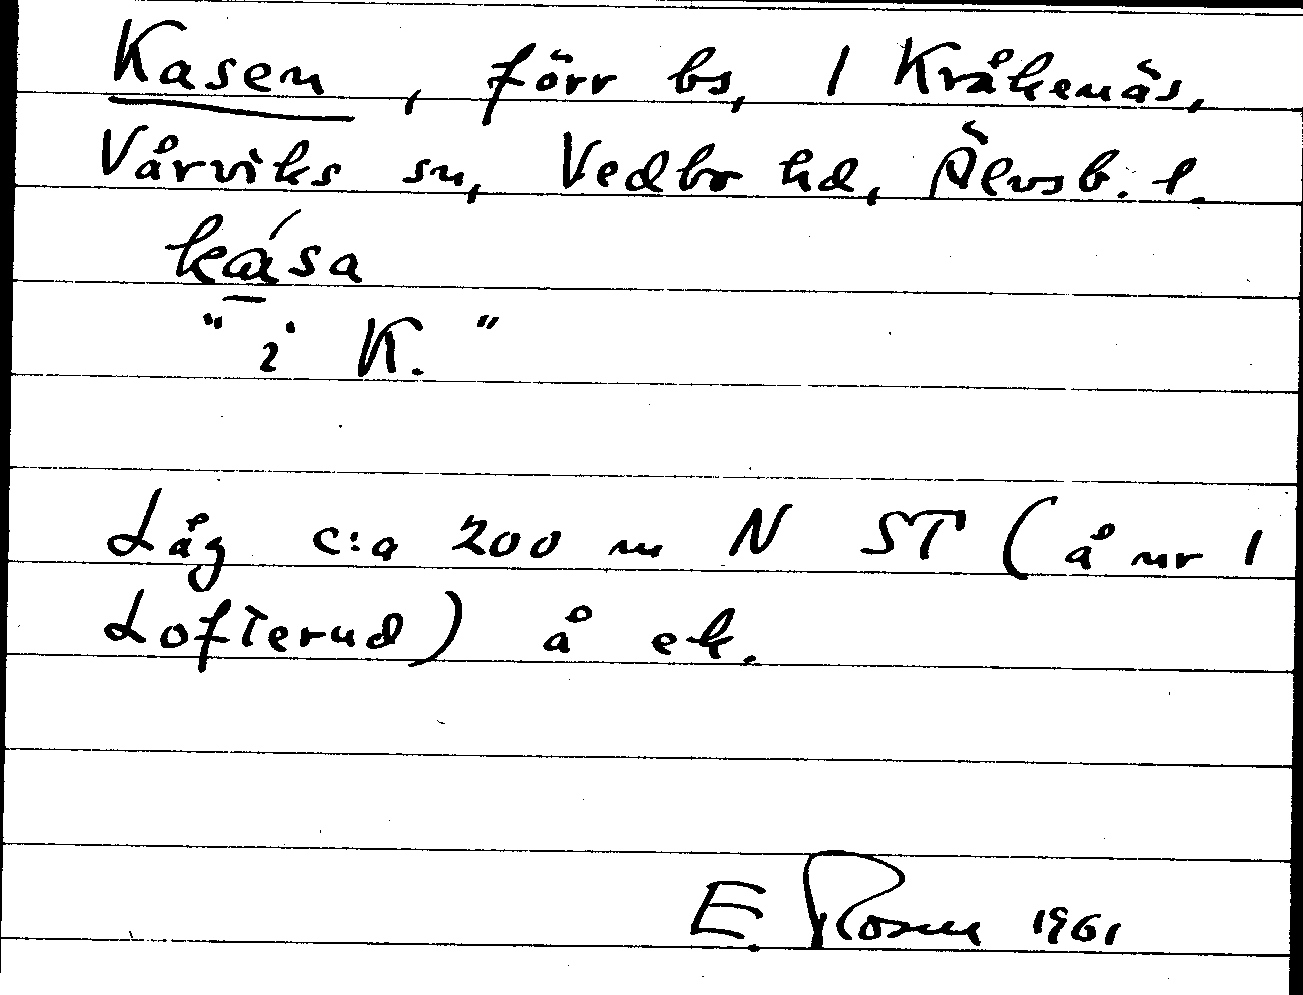 Kasen, förr bs, 1 Kråkenäs,
Vårviks sn, Vedbo hd, Älvsb. l.
kása
"i K."
Låg c:a 200 m N ST (å nr 1
Lofterud) å ek.
E. Rosen 1961